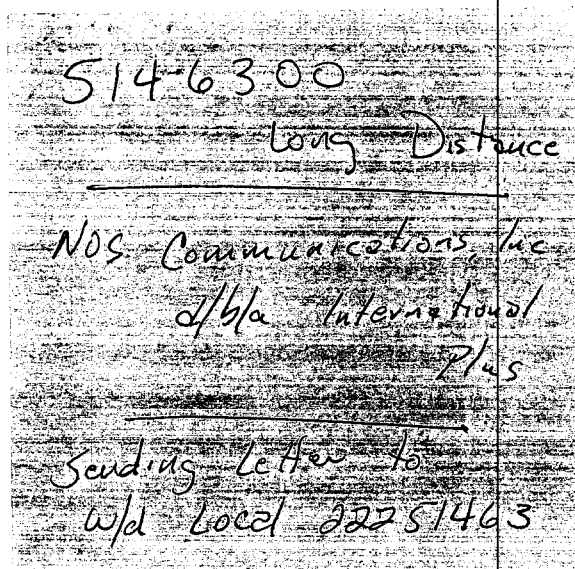 514-6300
Long Distance
NOS Communications, Inc
d/b/a International
Plus
Sending Letter to
w/d Local 22251463